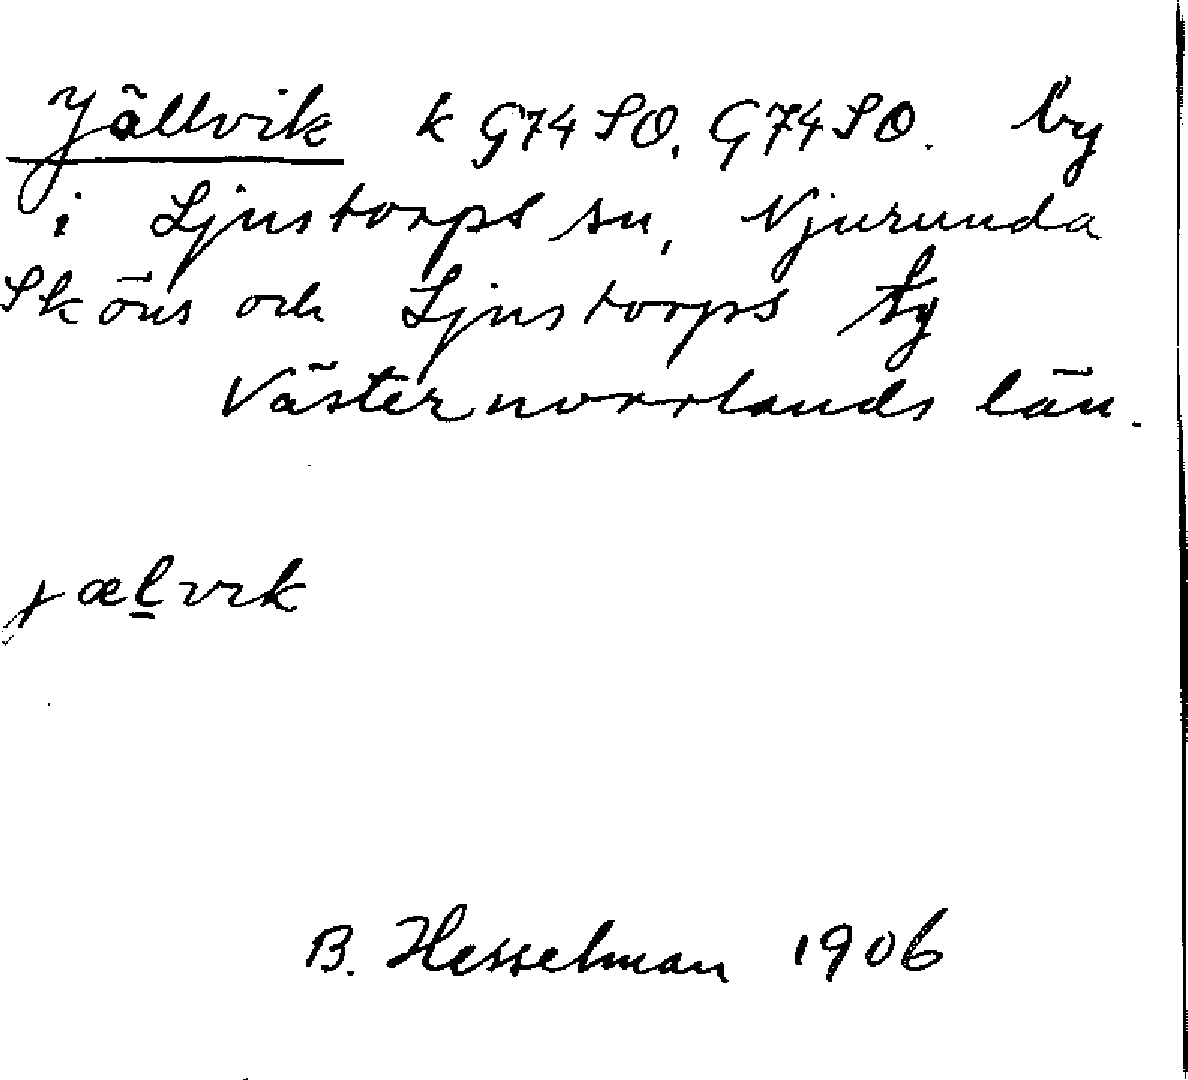 Jällvik k G74SO. G74SO. by
i Ljustorps sn, Njurunda
Sköns och Ljustorps tg
Västernorrlands län.
jælvik
B. Hesselman 1906